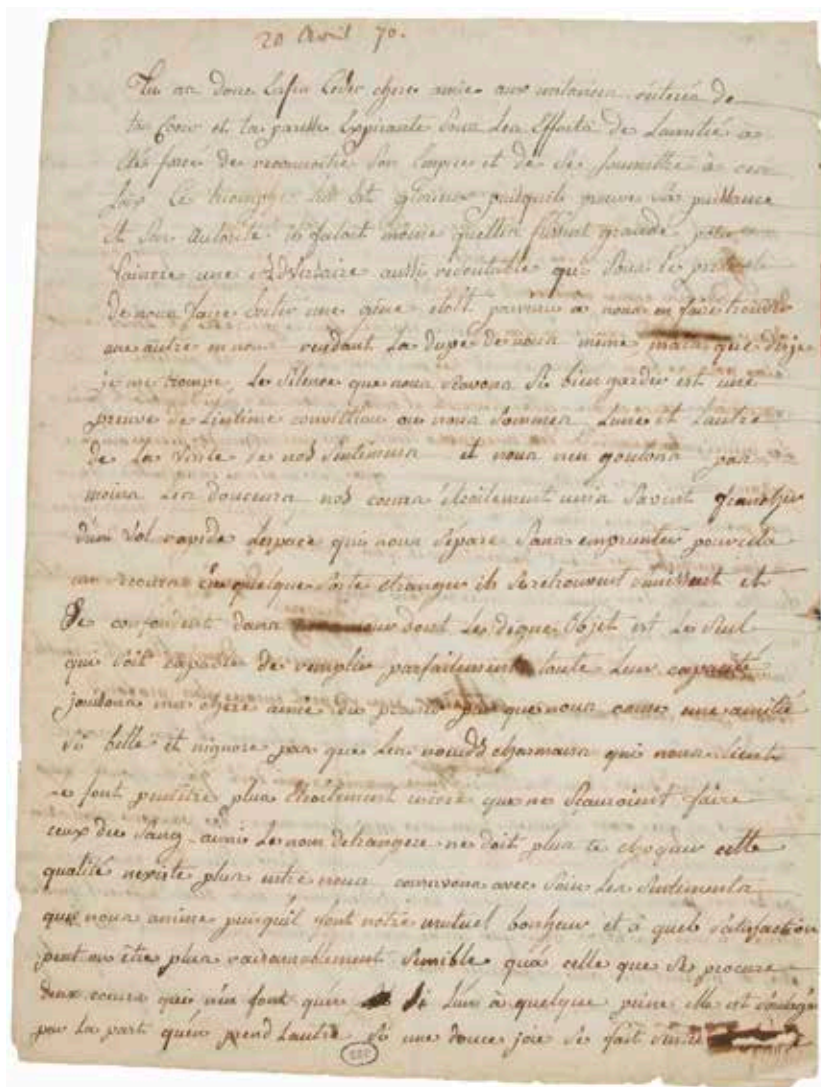 20 Avril 70.
Tu as donc Enfin Ceder chere amie aux instances réiteréé de
ta Coeur et ta paresse Expirante Sous les Efforts de Lamitié a
été forcé de reconnoitre Son Empire et de Se soumettre à
Loix Ce triomphe est glorieux puisquil prouve Sa puissance
et Son Autorité il faloit même quelles fussent grande pour
Vaincre une adversaire aussi redoutable qui Sous le pretexte
de nous faire Eviter une gêne etoit parvenu a nous en faire trouver
une autre en nous rendant La dupe de nous même, mais que dis je
je me trompe, Le Silence que nous Scavons Si bien garder est une
preuve de Lintime conviction ou nous Sommes Lune et Lautre
de La Verité de nos Sentimens et nous nen goutons pas
moins Les douceurs nos coeurs étroitement unis Savent franchir
dun Vol rapide Lespace qui nous Sépare Sans emprunter pour cela
un Secours En quelque Sorte etranger ils Se retrouvent Sunissent et
Se confondent dans dont Le digne Objet est Le Seul
qui Soit capable de remplir parfaitement toute Leur capacité
jouissons ma chere amie du que nous cause une amitié
Si belle et nignore pas que Les noeuds charmans qui nous Lient
Le sont peutêtre plus Etroitement encore que ne Scauroient faire
ceux du Sang ainsi Le nom detrangere ne doit plus te choquer cette
qualité nexiste plus entre nous conservons avec Soin Les Sentiments
qui nous anime puisquil font notre mutuel bonheur et à quel Satisfaction
peut on être plus raisonnablement Sensible qua celle que Se procure
deux coeurs qui nen font quún Si Lún à quelque peine elle est Soulagé
par La part quén prend Lautre Si une douce joie Se fait Sentir